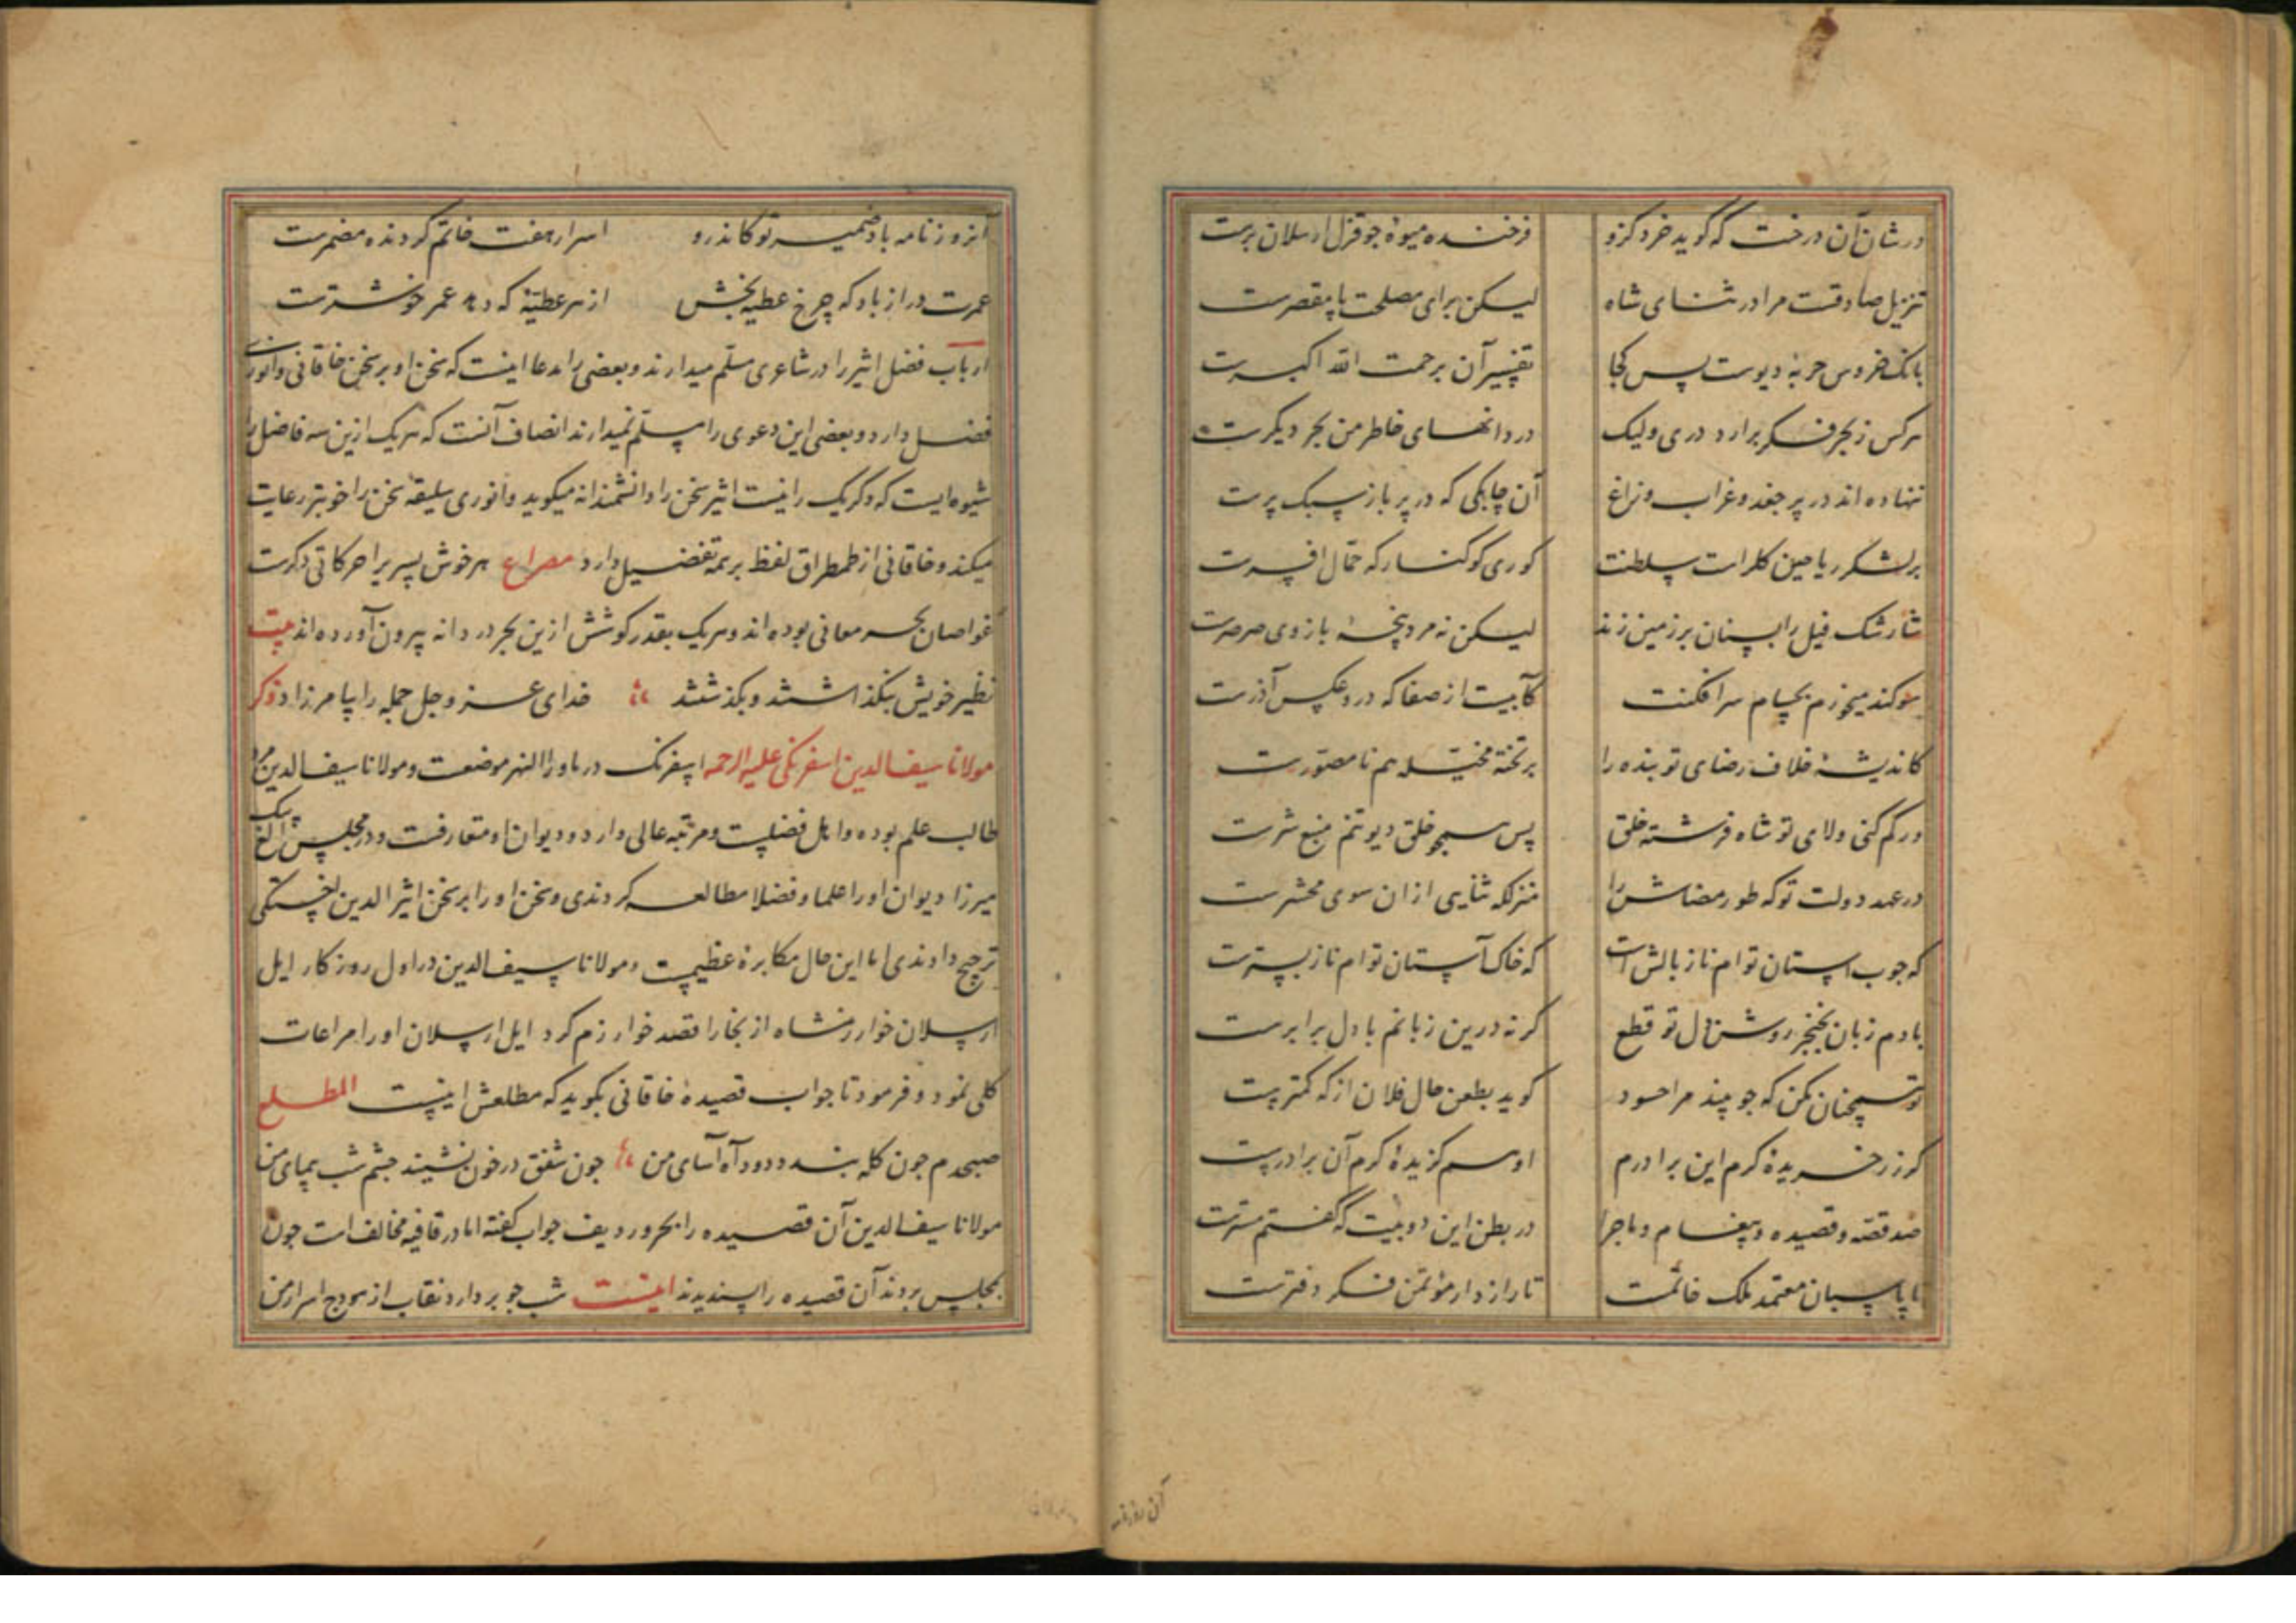 در شان آن درخت که گوید خرد کزو فرخنده میوهٔ جو قزل ارسلان برست
تنزیل صادقست مرا در ثنای شاه لیکن برای مصلحت پا مقصرست
بانک خروس حربهٔ دیوست پس کجا تفسیر آن برحمت الله اکبرست
هرکس ز بحر فکر برارد دری ولیک دردانهای خاطر من بحر دیکرست
ننهاده اند در پر جغد و غراب و زاغ آن چابکی که در پر باز سبک پرست
بر لشکر ریاحین کلراست سلطنت کوری کوکنار که حمال افسرست
شار شک فیل را بسنان بر زمین زند لیکن نه مرد پنجهٔ بازوی صرصرست
سوکند میخورم بحسام سرافکنت کآبیست از صفا که درو عکس آذرست
کاندیشهٔ خلاف رضای تو بنده را بر تختهٔ مخیله هم نامصورست
ور کم کنی ولای تو شاه فرشته خلق پس همجو خلق دیو تنم منبع شرست
در عهد دولت تو که طور مضاش را منزلکه ازان سوی محشرست
که جوب استان توام ناز بالش است که خاک آستان توام ناز بسترست
بادم زبان بخنجر روشن دل تو قطع کرنه درین زبانم با دل برابرست
تو همچنان مکن که جو بیند مرا حسود کوید بطعن حال فلان از که کمترست
کر زر خریدهٔ کرم این برادرم او هم کزیدهٔ کرم آن برادرست
صد قصه و قصیده و پیغام و ماجرا در بطن این دو بیت که گفتم مسترست
تا پاسبان معتمد ملک خاتمست تا رازدار مؤتمن فکر دفترست
آن روزنامه
آن روزنامه باد ضمیر تو کاندرو اسرار هفت خاتم کردنده مضمرست
عمرت دراز باد که چرخ عطیه بخش از هر عطیهٔ که دهد عمر خوشترست
ارباب فضل اثیر را در شاعری مسلم میدارند و بعضی را مدعا اینست که سخن او بر سخن خاقانی و انوری
فضل دارد و بعضی این دعوی را مسلم نمیدارند انصاف آنست که هریک ازین سه فاضل را
شیوه ایست که دگریک را نیست اثیر سخن را دانشمندانه میکوید و انوری سلیقهٔ سخن را خوبتر رعایت
میکند و خاقانی از طمطراق لفظ بر همه تفضیل دارد مصراع هر خوش پسری را حرکاتی دکرست
غواصان بحر معانی بوده اند و هریک بقدر کوشش ازین بحر دردانه بیرون آورده اند بیت
نظیر خویش بنگذاشتند و بگذشتند خدای عز و جل جمله را بیامرزاد ذکر
مولانا سیف الدین اسفرنکی علیه الرحمه اسفرنک در ماوراالنهر موضعست و مولانا سیف الدین مرد
طالب علم بوده و اهل فضلست و مرتبه عالی دارد و دیوان او متعارفست و در مجلس الغ بیک
میرزا دیوان او را علما و فضلا مطالعه کردندی و سخن او را بر سخن اثیر الدین اخسیکتی
ترجیح دادندی اما این حال مکابرهٔ عظیمست و مولانا سیف الدین در اول روزکار ایل
ارسلان خوارزمشاه از بخارا قصد خوارزم کرد ایل ارسلان او را مراعات
کلی نمود و فرمود تا جواب قصیدهٔ خاقانی بکوید که مطلعش اینست المطلع
صبحدم جون کله بندد دود آه آسای من جون شفق در خون نشیند جشم شب پیمای من
مولانا سیف الدین آن قصیده را بحر و ردیف جواب کفته اما در قافیه مخالف است جون
بمجلس بردند آن قصیده را پسندیدند اینست شب جو بردارد نقاب از هودج اسرار من